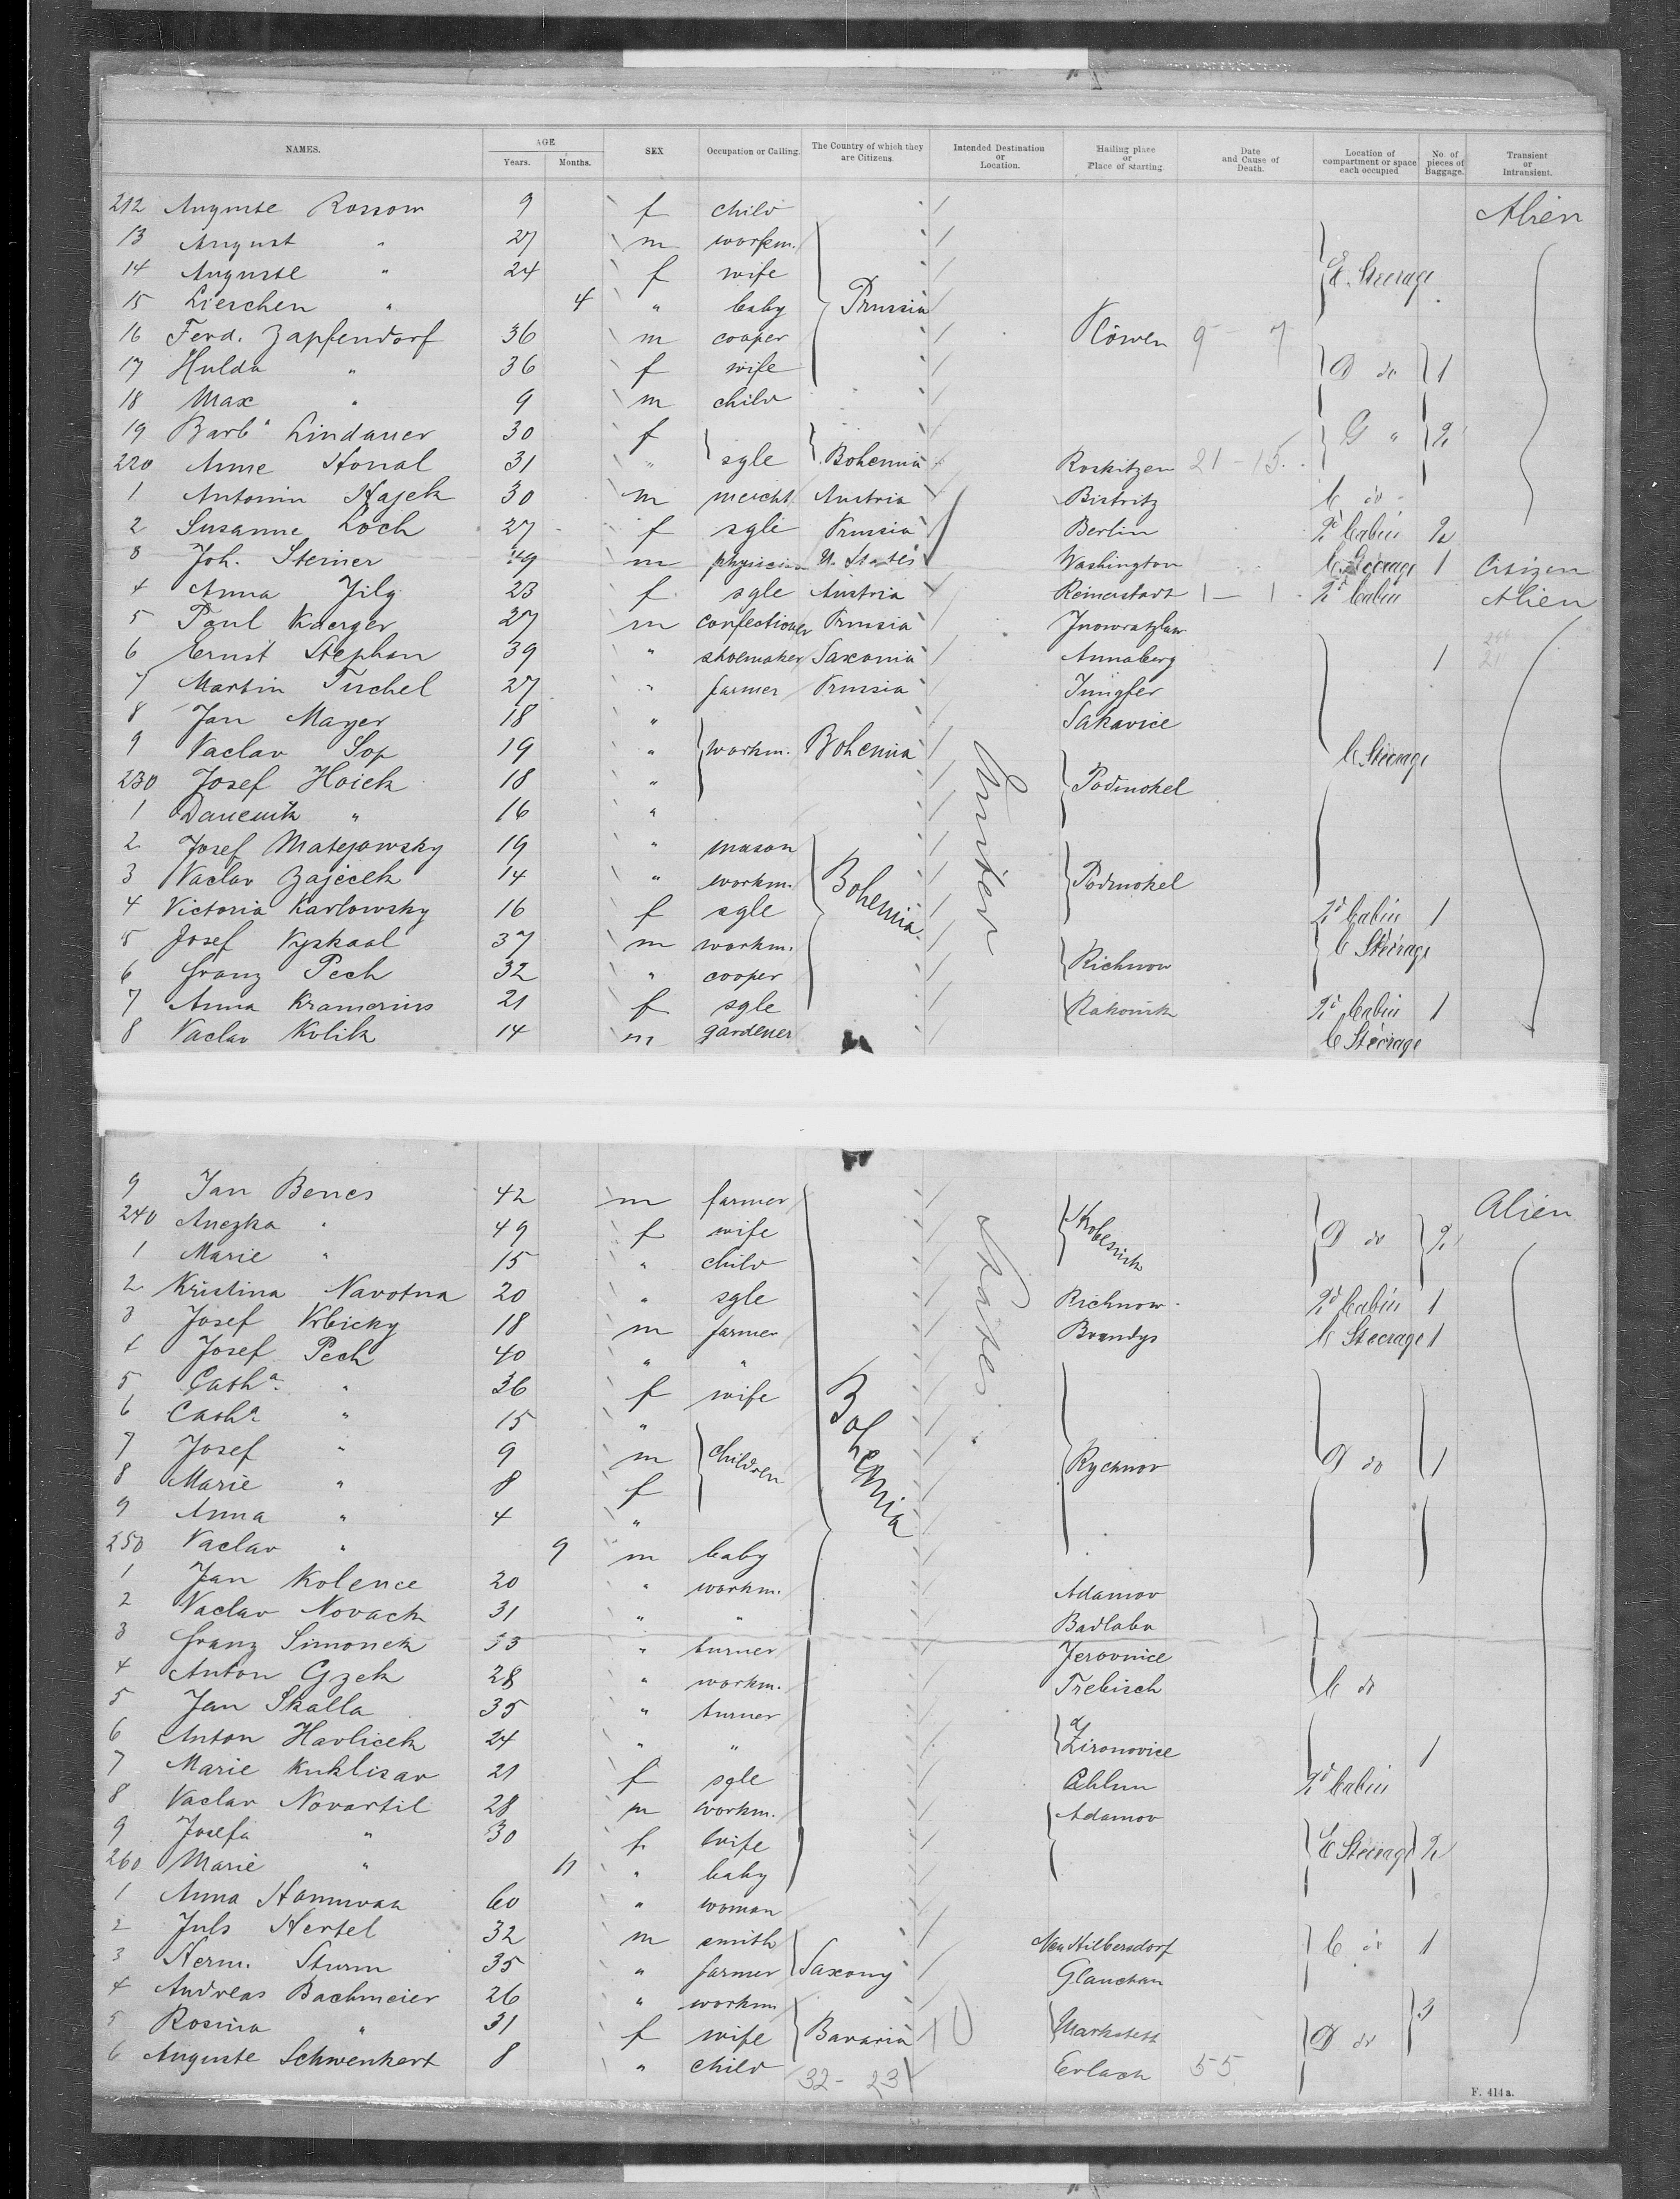 NAMES. AGE Years. Months. SEX Occupation or Calling. The Country of which they are Citizens. Intended Destination or Location. Hailing place or Place of starting. Date and Cause of Death. Location of compartment or space each occupied No. of pieces of Baggage. Transient or Intransient.
212 Auguste Rossow 9 f child Alien
13 August " 27 m workm.
14 Auguste " 24 f wife E. Steerage
15 Lierchen " 4 " baby Prussia
16 Ferd. Zapfendorf 36 m cooper Löwen 9 - 7
17 Hulda " 36 f wife D do 1
18 Max " 9 m child
19 Barba Lindauer 30 f G " 2
220 Anne Honal 31 " sgle Bohemia Roskitzen 21 - 15.
1 Antonin Hajek 30 m mercht. Austria Bistritz C do
2 Susanne Loch 27 f sgle Prussia Berlin 2d Cabin 2
3 Joh. Steiner 49 m physician U. States Washington C Steerage 1 Citizen
4 Anna Jilg 23 f sgle Austria Reinerstadt 1 - 1 2d Cabin Alien
5 Paul Kaerger 27 m confectioner Prussia Inowratzlaw
6 Ernst Stephan 39 " shoemaker Saxonia Annaberg 1
7 Martin Tuchel 27 " farmer Prussia Jungfer
8 Jan Mayer 18 " Sakavice
9 Vaclav Sop 19 " workm. Bohemia C Steerage
230 Josef Hoick 18 " Podmokel
1 " 16 "
2 Josef Matejowsky 19 " mason
3 Vaclav Zajecek 14 " workm. Bohemia. Podmokel
4 Victoria Karlowsky 16 f sgle 2d Cabin 1
5 Josef Vyskaal 37 m workm. C Steerage
6 Franz Pech 32 " cooper Richnow
7 Anna Kramerius 21 f sgle Rakonik 2d Cabin 1
8 Vaclav Kolik 14 m gardener C Steerage
United
9 Jan Benes 42 m farmer Alien
240 Anezka " 49 f wife D do 2
1 Marie " 15 " child
2 Kristina Navotna 20 " sgle Richnow 2d Cabin 1
3 Josef Vrbicky 18 m farmer Brandys C Steerage 1
4 Josef Pech 40 " "
5 Catha. " 36 f wife
6 Catha " 15 "
7 Josef " 9 m children Bohemia Rychnov D do 1
8 Marie " 8 f
9 Anna " 4 "
250 Vaclav " 9 m baby
1 Jan Kolence 20 " workm. Adamov
2 Vaclav Novack 31 " " Badlaba
3 Franz Simonek 33 " turner Jerovnice
4 Anton Gzek 28 " workm. Trebisch C do
5 Jan Skalla 35 " turner
6 Anton Havlicek 24 " " Zironovice 1
7 Marie Kuklisav 21 f sgle Chlum 2d Cabin
8 Vaclav Novartil 28 m workm. Adamov
9 Josefa " 30 f. wife E Steerage 2
260 Marie " 11 " baby
1 Anna 60 " woman
2 Juls Hertel 32 m smith Neu Hilbersdorf C do 1
3 Herm. Sturm 35 " farmer Saxony Glauchau
4 Andreas Bachmeier 26 " workm 3
5 Rosina " 31 f wife Bavaria Marksteft D do
6 Auguste Schwenkert 8 " child Erlach 55.
States.
32 - 23
F. 414a.